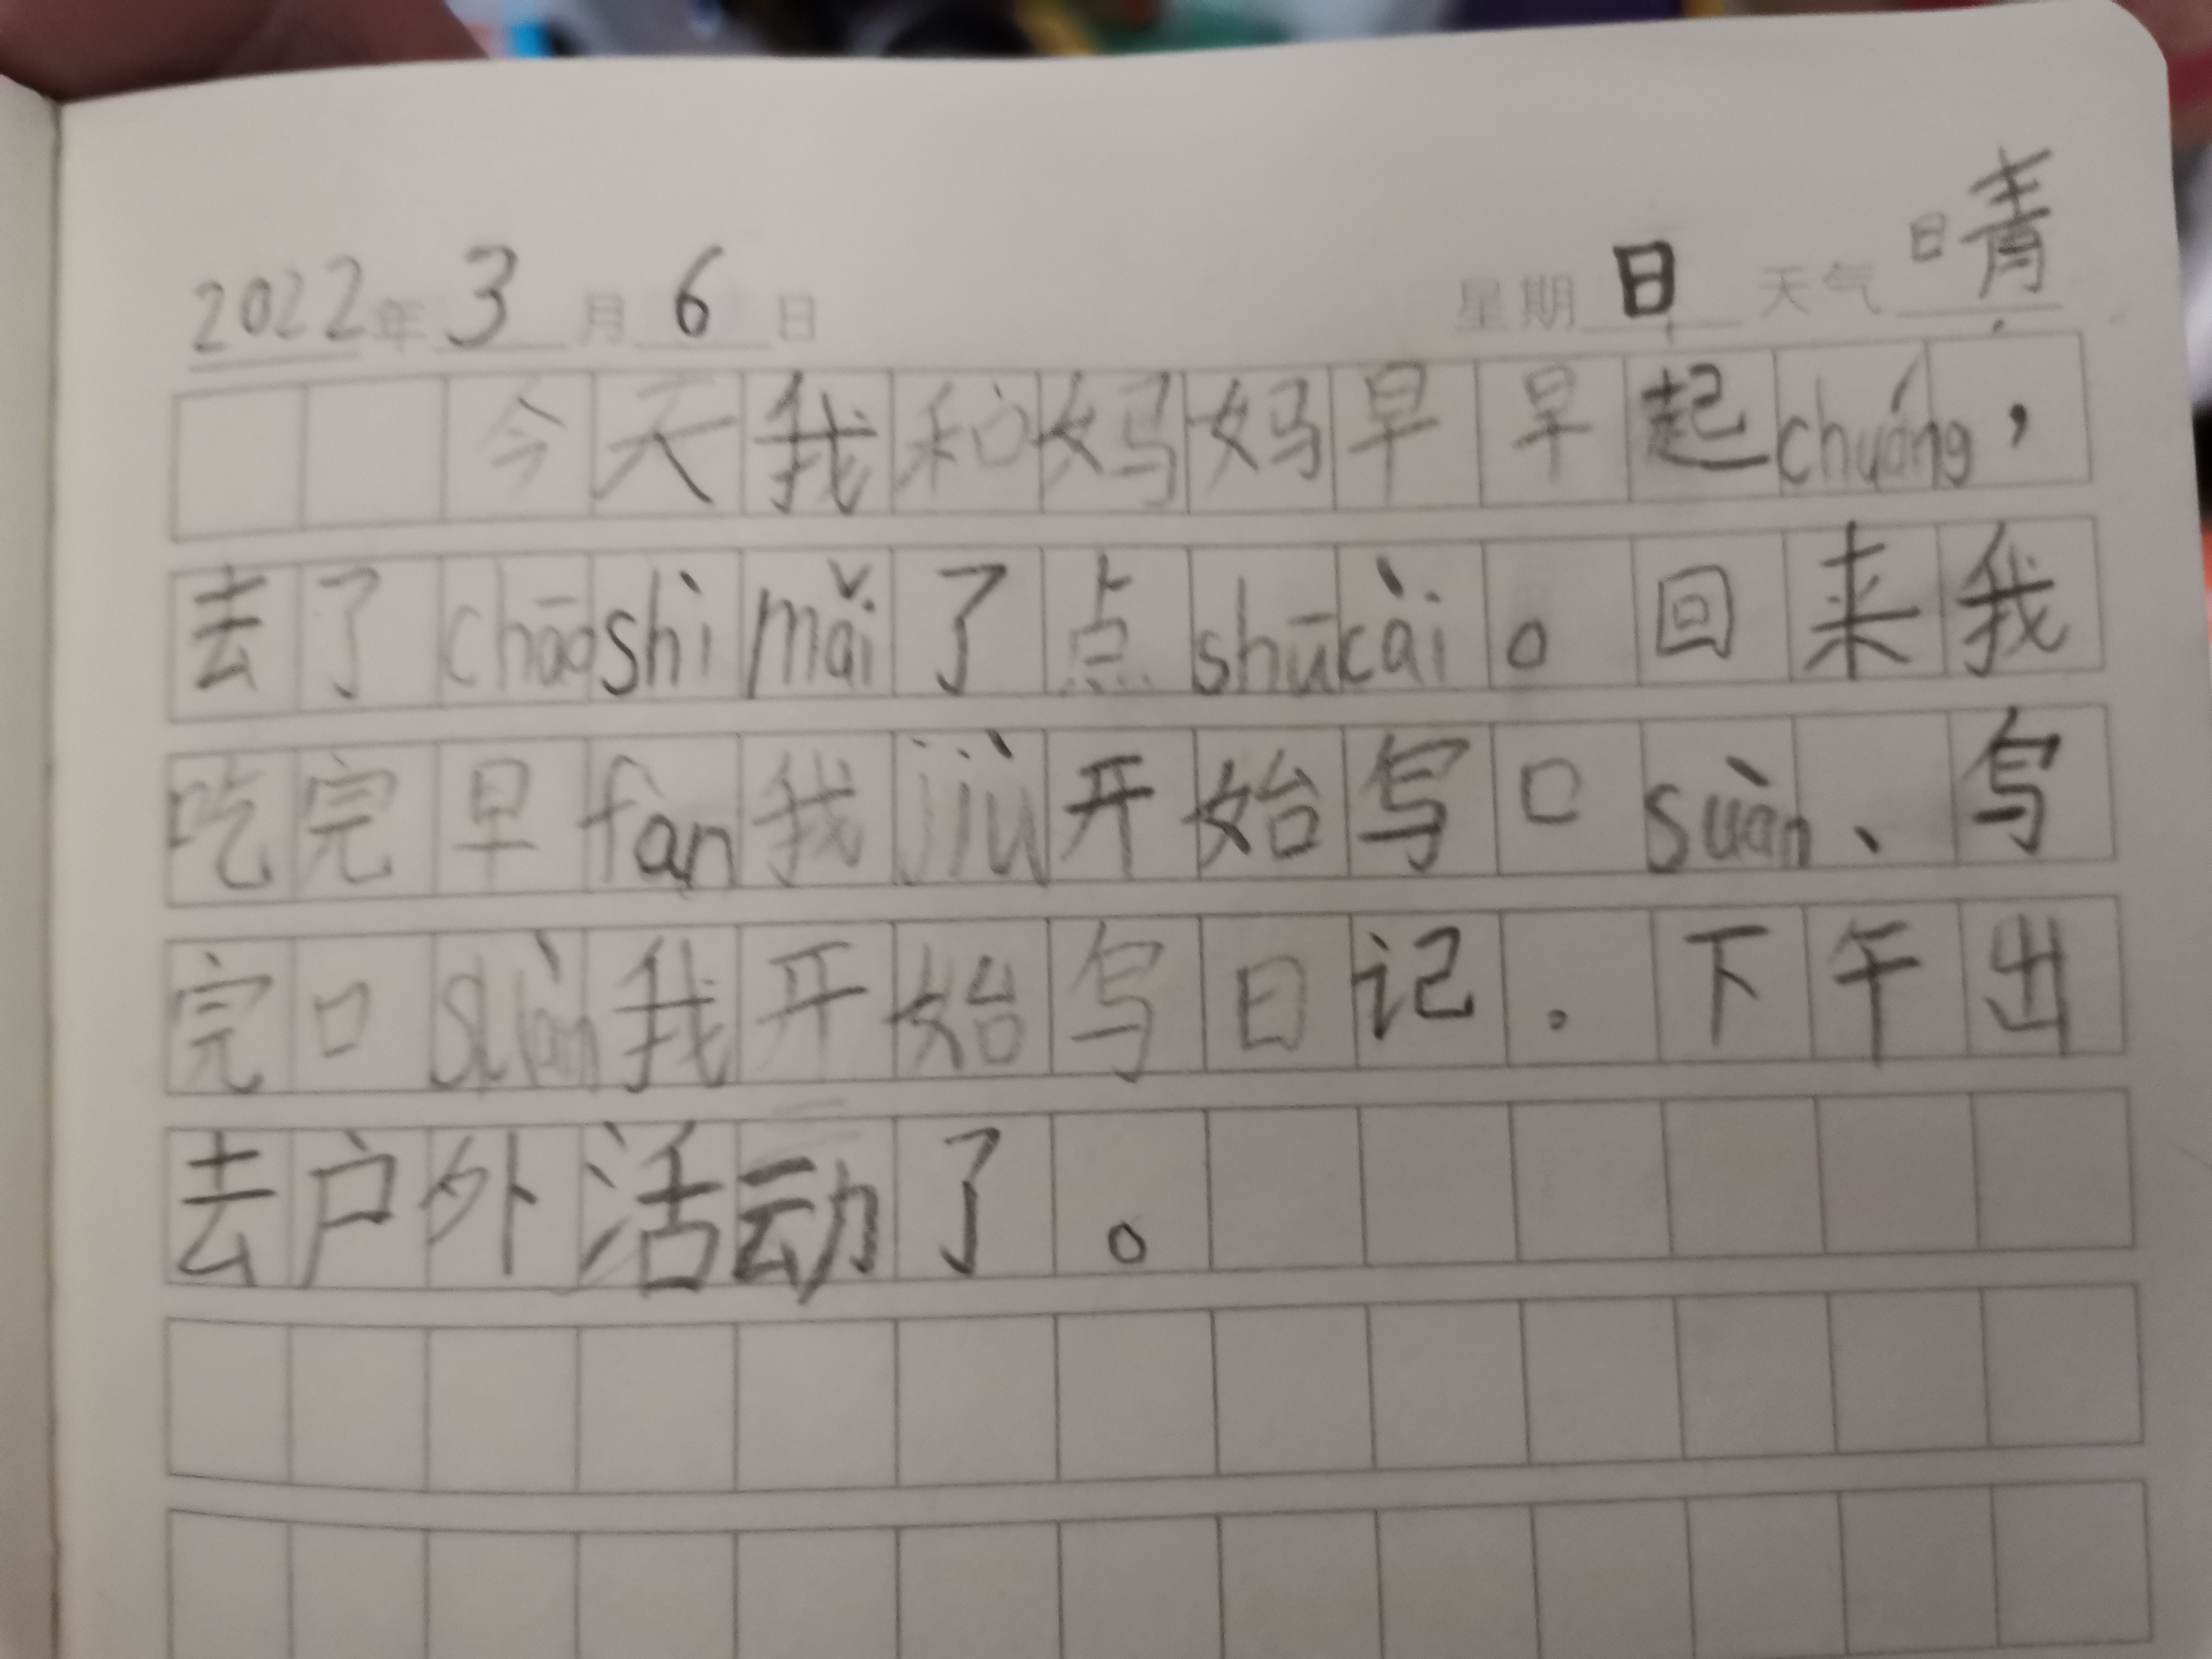 2022年3月6日 星期日 天气晴
今天我和妈妈早早起chuáng，
去了chāoshì mǎi了点shūcài。回来我
吃完早fàn我jiù开始写口suàn、写
完口suàn我开始写日记.下午出
去户外活动了。